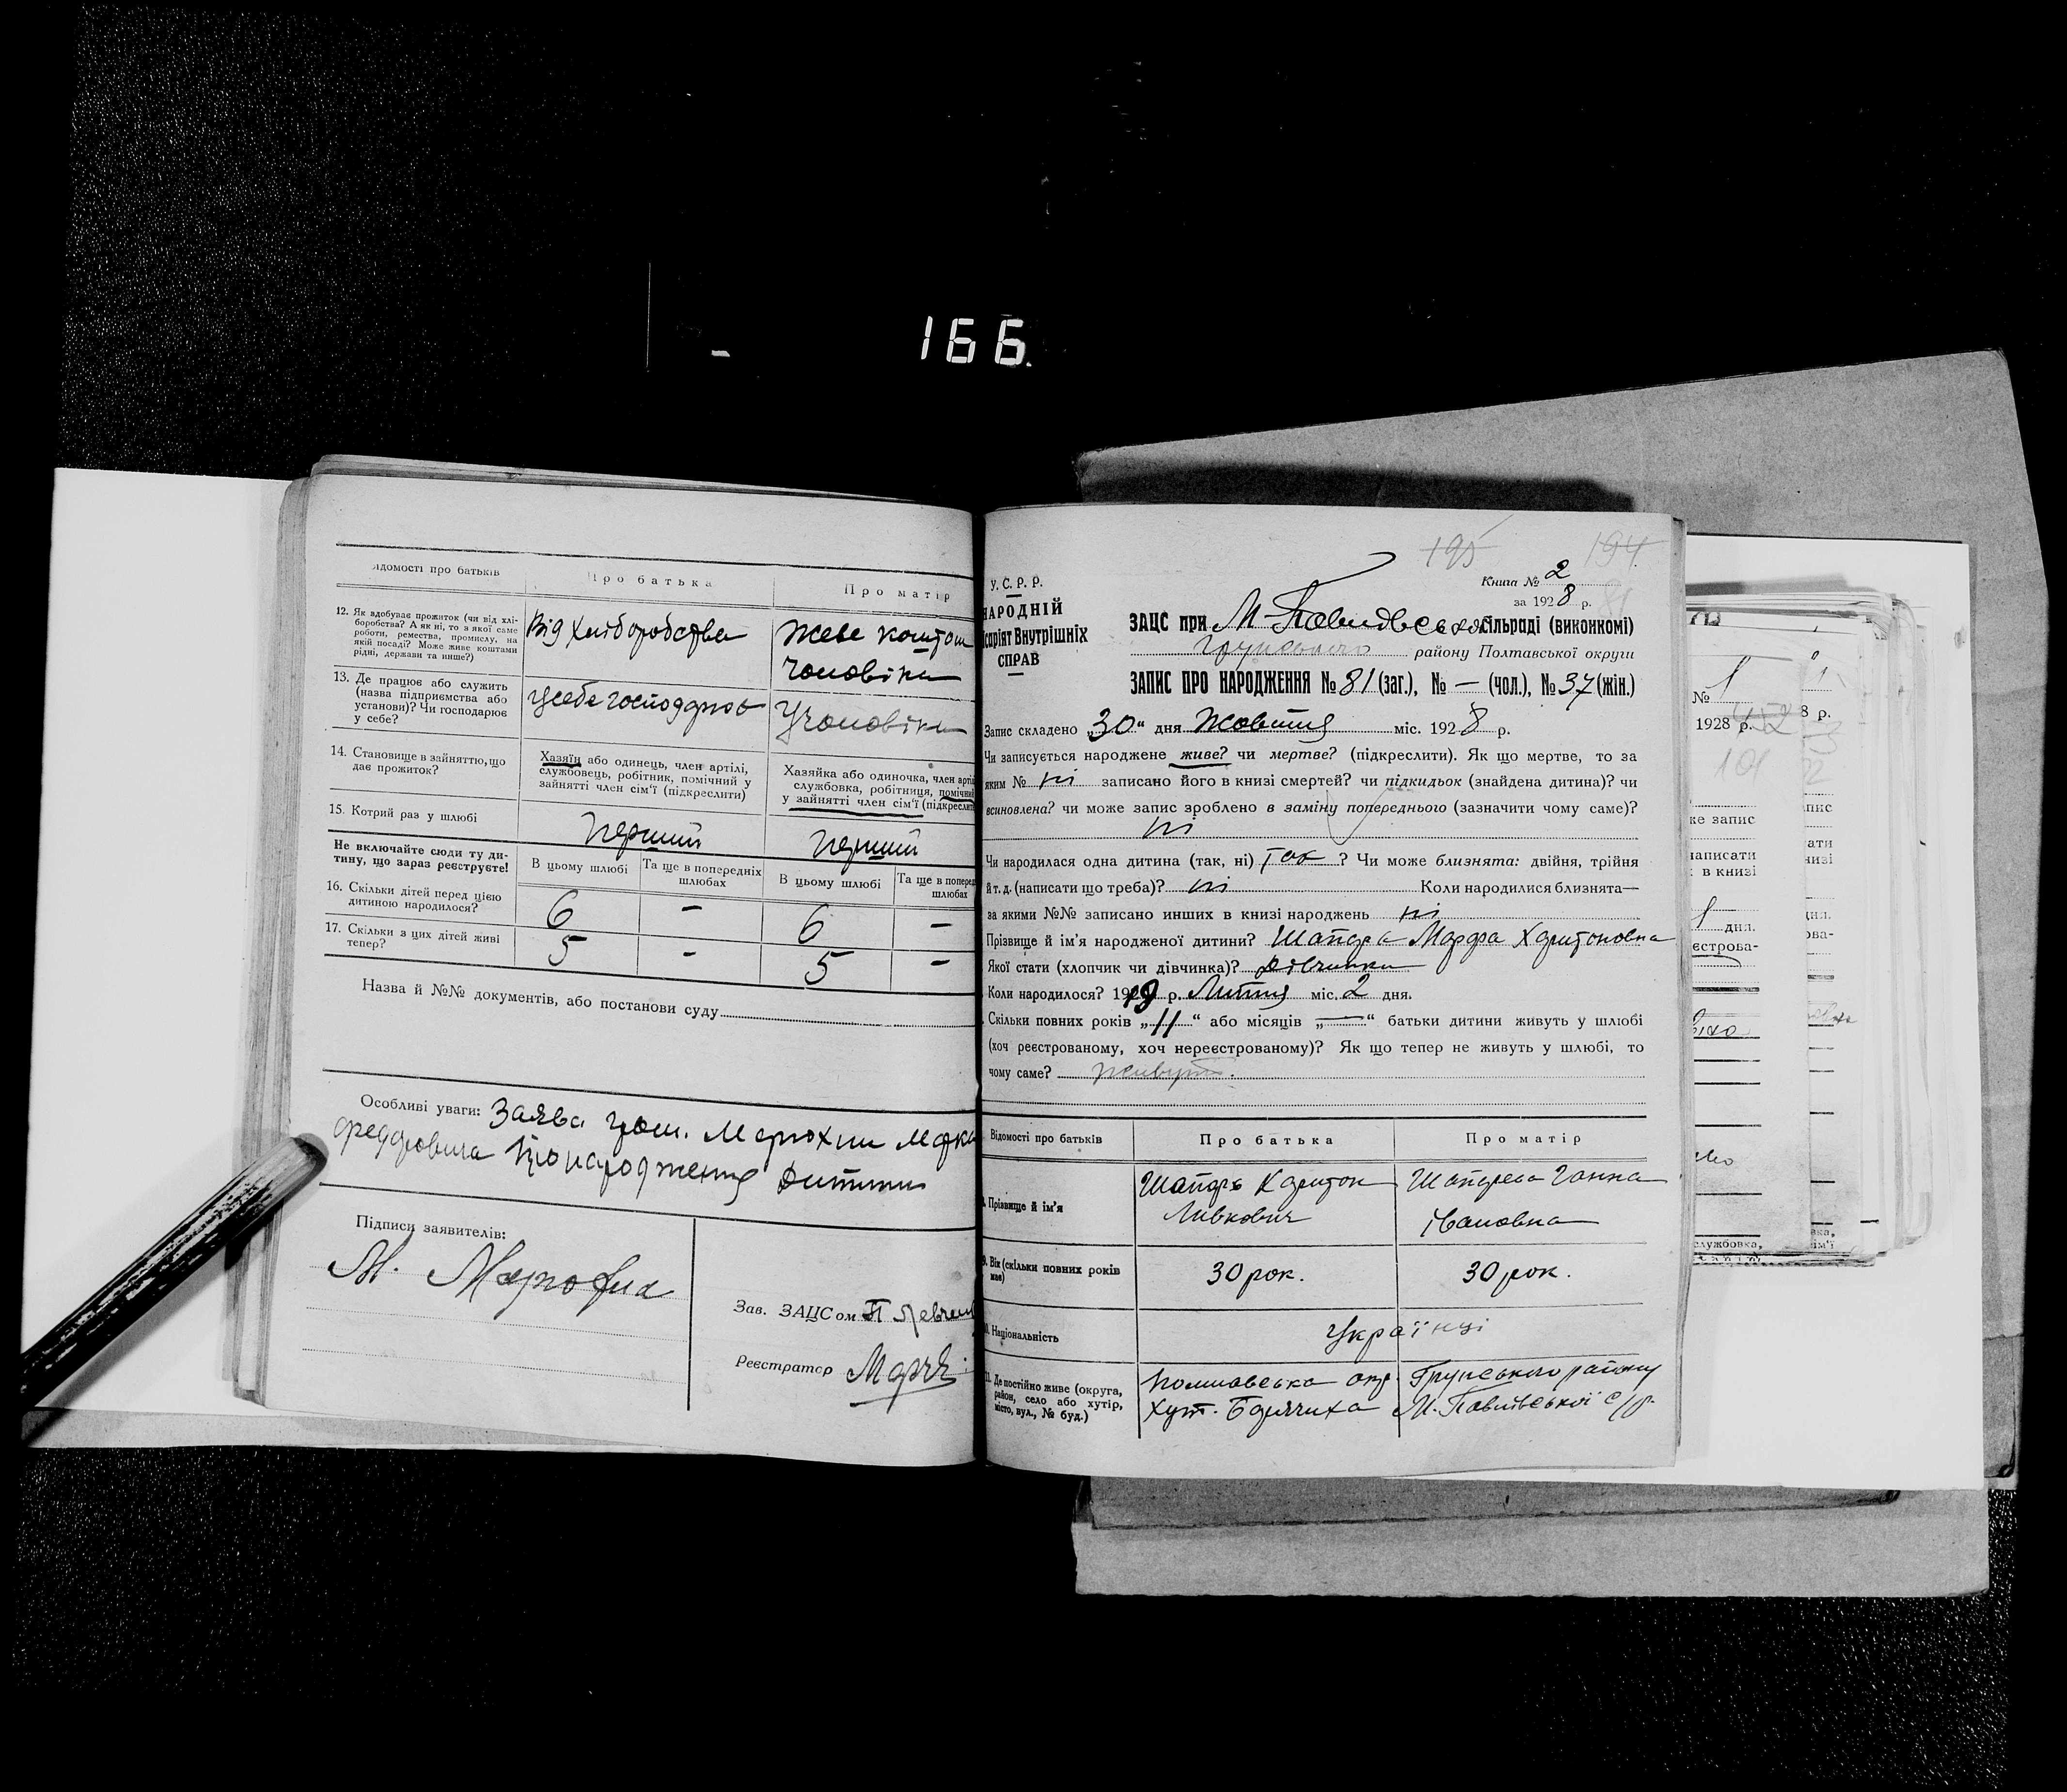 166.
Відомості про батьків
Про батька
Про матір
12. Як здобуває прожиток (чи від хлі-
боробства? А як ні, то з якої саме
роботи, ремества, промислу, на
якій посаді? Може живе коштами
рідні, держави та инше?)
Від хліборобства
Живе коштом
чоловіка
13. Де працює або служить
(назва підприємства або
установи)? Чи господарює
у себе?
У себе господарює
У чоловіка
14. Становище в зайняттю, що
дає прожиток?
Хазяїн або одинець, член артілі,
службовець, робітник, помічний у
зайнятті член сім'ї (підкреслити)
Хазяйка або одиночка, член арті
службовка, робітниця, помічний
у зайнятті член сім'ї (підкреслит
15. Котрий раз у шлюбі
Перший
Перший
Не включайте сюди ту ди-
тину, що зараз реєструєте!
В цьому шлюбі
Та ще в попередніх
шлюбах
В цьому шлюбі
Та ще в поперед
шлюбах
16. Скільки дітей перед цією
дитиною народилося?
6 - 6 -
17. Скільки з цих дітей живі
тепер?
5 - 5 -
Назва й №№ документів, або постанови суду
Особливі уваги: Заява гром.
народження дитини
Підписи заявителів:
М.
Зав. ЗАЦСом П
Реєстратор
195 194
У.С.Р.Р.
НАРОДНІЙ
Внутрішніх
СПРАВ
Книга № 2
за 1928 р.
ЗАЦС при М-Павлівській сільраді (виконкомі)
Грунського району Полтавської округи
ЗАПИС ПРО НАРОДЖЕННЯ № 81 (заг.), № — (чол.), № 37 (жін.)
Запис складено „30“ дня Жовтня міс. 1928 р.
Чи записується народжене живе? чи мертве? (підкреслити). Як що мертве, то за
яким № ні записано його в книзі смертей? чи підкидьок (знайдена дитина)? чи
всиновлена? чи може запис зроблено в заміну попереднього (зазначити чому саме)?
ні
Чи народилася одна дитина (так, ні) так ? Чи може близнята: двійня, трійня
й т. д. (написати що треба)? ні Коли народилися близнята—
за якими №№ записано инших в книзі народжень ні
Прізвище й ім'я народженої дитини? Шапдра Марфа Харитоновна
Якої стати (хлопчик чи дівчинка)? дівчинка
Коли народилося? 19 р. Липня міс. 2 дня.
Скільки повних років „11“ або місяців „—“ батьки дитини живуть у шлюбі
(хоч реєстрованому, хоч нереєстрованому)? Як що тепер не живуть у шлюбі, то
чому саме? Живуть.
Відомості про батьків
Про батька
Про матір
Прізвище й ім'я
Шапдра Харитон
Левкович
Шапдрева Ганна
Івановна
Вік (скільки повних років
має)
30 рок.
30 рок.
Національність
Українці
Де постійно живе (округа,
район, село або хутір,
місто, вул., № буд.)
Полтавська окр. Грунського району
Хут. М. Павлівської с/р.
№ 1
1928 р.
8 р.
же запис
написати
в книзі
дня.
службовка,